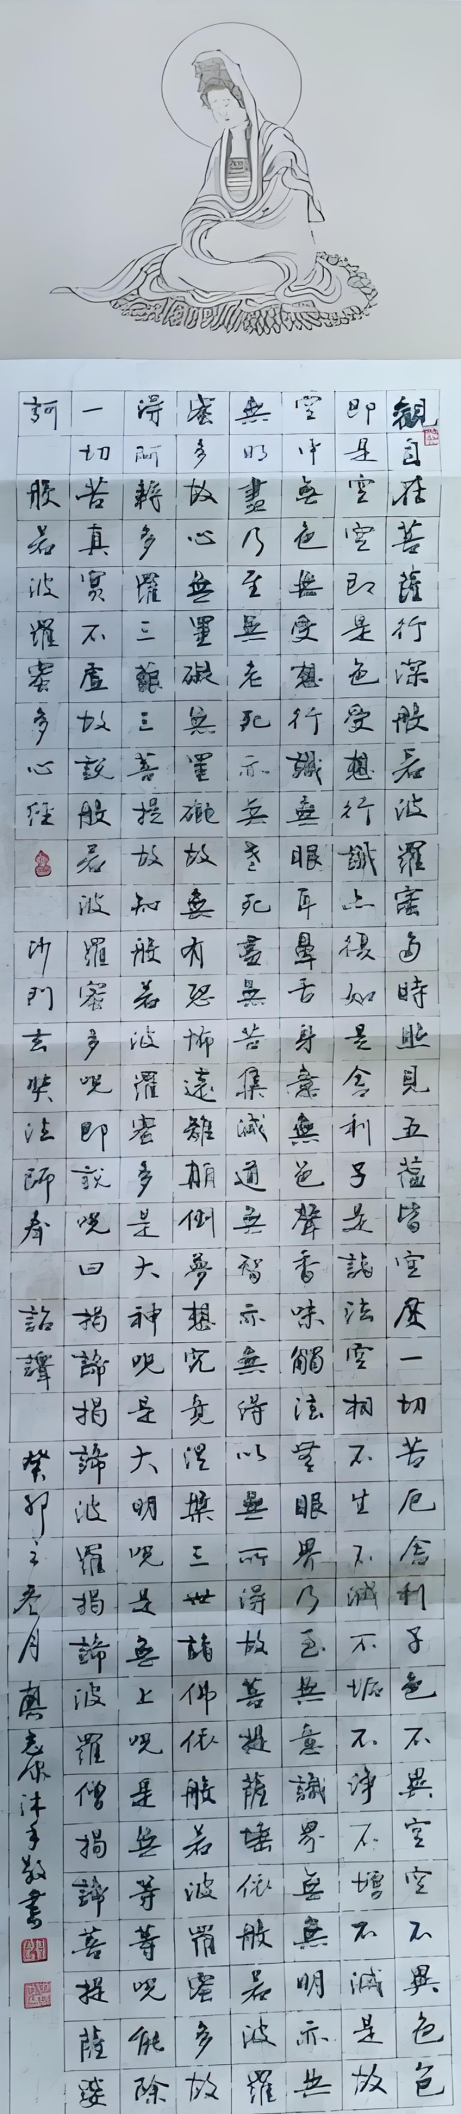 觀自在菩薩行深般若波羅蜜多時照見五蘊皆空度一切苦厄舍利子色不異空空不異色色
即是空空即是色受想行識亦復如是舍利子是諸法空相不生不滅不垢不淨不增不減是故
空中無色無受想行識無眼耳鼻舌身意無色聲香味觸法無眼界乃至無意識界無無明亦無
無明盡乃至無老死亦無老死盡無苦集滅道無智亦無得以無所得故菩提薩埵依般若波羅
蜜多故心無罣礙無罣礙故無有恐怖遠離顛倒夢想究竟涅槃三世諸佛依般若波羅蜜多故
得阿耨多羅三藐三菩提故知般若波羅蜜多是大神呪是大明呪是無上呪是無等等呪能除
一切苦真實不虛故說般若波羅蜜多呪即說呪曰揭諦揭諦波羅揭諦波羅僧揭諦菩提薩婆
訶 般若波羅蜜多心經 沙門玄奘法師奉 詔譯 癸卯之 月 沐手敬書